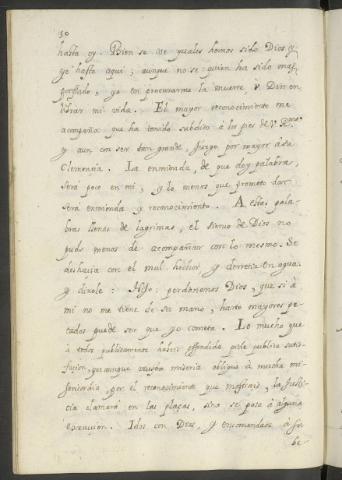 30
hasta oy. Bien se ve quales hemos sido Dios, y
yo hasta aqui; aunque no se quien ha sido mas
porfiado, yo en procurarme la muerte, ò Dios en
librar mi vida. El mayor reconocimiento me
acompaña que ha tenido subdito à los pies de V. Rma.
y aun con ser tan grande, juzgo por mayor a su
Clemencia. La enmienda, de que doy palabra,
será poco en mi; y lo menos que prometo dar
será enmienda y reconocimiento. A estas pala-
bras llenas de lagrimas, el siervo de Dios no
pudo menos de acompañar con lo mesmo. Se
deshacia con el mal hechor y derretia en agua
y dixole: Hijo: perdonenos Dios, que si à
mi no me tiene de su mano, harto mayores pe-
cados puede ser que yo cometa. Lo mucho que
à todos publicamente habeis offendido pide publica satis-
faccion, y aunque vuestra miseria obliga à mucha mi-
sericordia, por el reconocimiento que mostrais, la Justi-
cia clamará en las plaças, sino se pone à alguna
execucion. Idos con Dios, y encomendaos à su
be